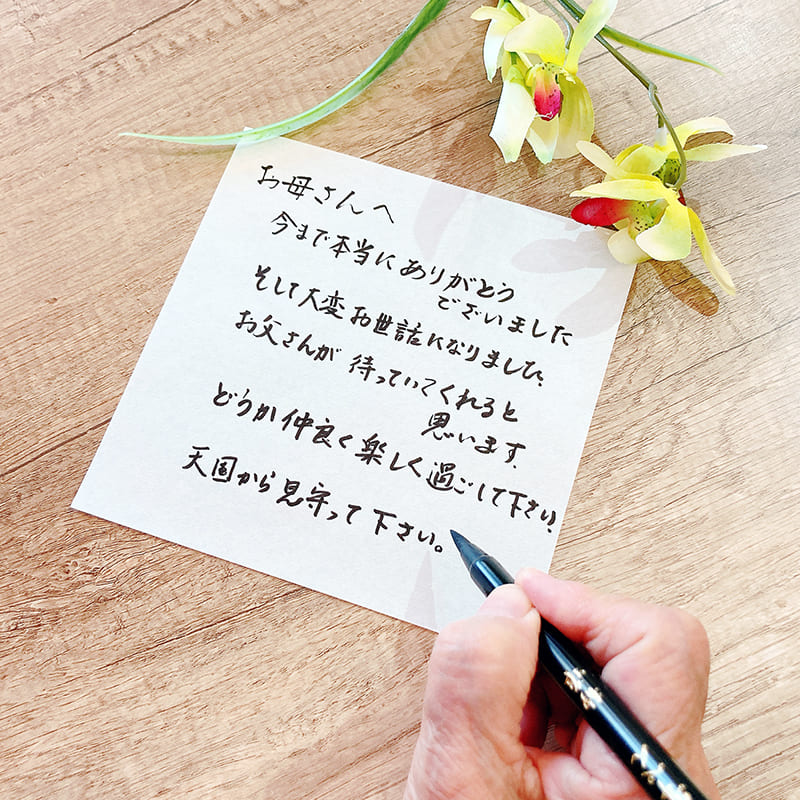 お母さんへ
今まで本当にありがとう
ございました
そして大変お世話になりました。
お父さんが待っていてくれると
思います。
どうか仲良く楽しく過ごして下さい。
天国から見守って下さい。